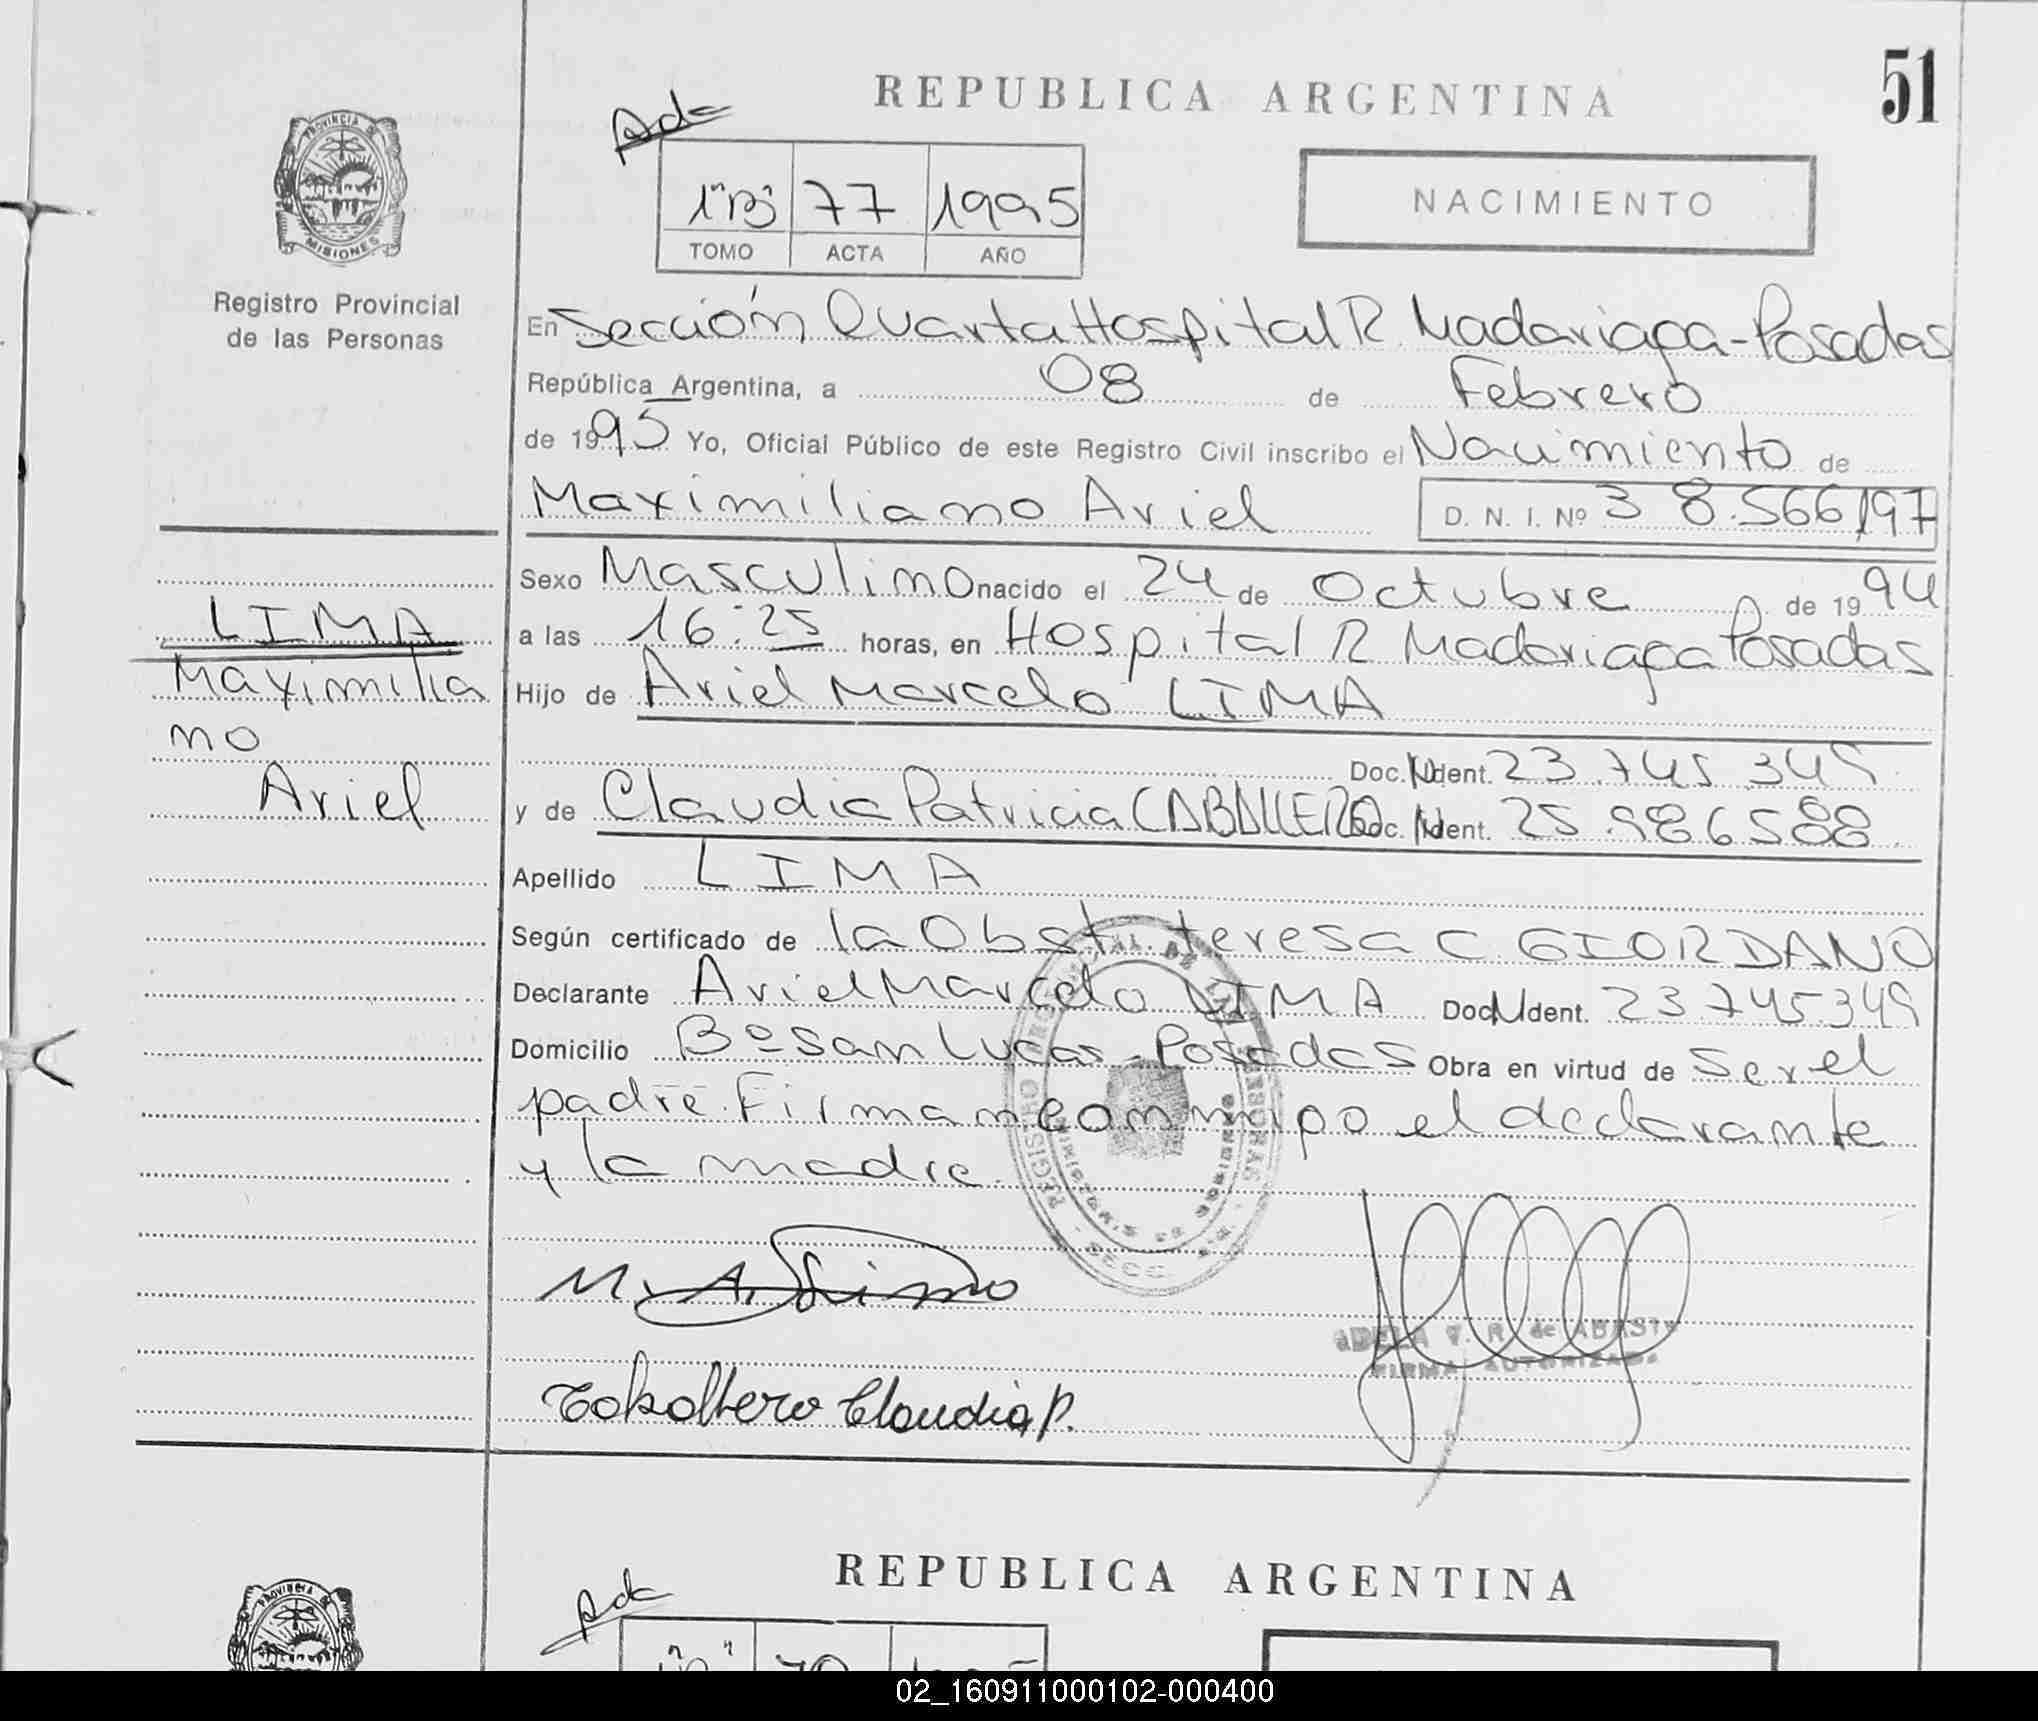 51
REPUBLICA ARGENTINA
PROVINCIA DE
MISIONES
Registro Provincial
de las Personas
NACIMIENTO
77 1995
TOMO ACTA AÑO
En Sección Cuarta Hospital R Madariaga - Posadas
República Argentina, a 08 de Febrero
de 1995 Yo, Oficial Público de este Registro Civil inscribo el Nacimiento de
Maximiliano Ariel D. N. I. Nº 38.566197
Sexo Masculino nacido el 24 de Octubre de 1994
LIMA
a las 16:25 horas, en Hospital R Madariaga Posadas
Maximilia
Hijo de Ariel Marcelo LIMA
no
Doc. Ident. 23.745.349
Ariel
y de Claudia Patricia CABALLERO Doc. Ident. 25.986588
Apellido LIMA
Según certificado de la Obst. teresa C. GIORDANO
Declarante Ariel Marcelo LIMA Doc Ident. 23.745.349
Domicilio Bº San Lucas - Posadas Obra en virtud de ser el
padre. Firman conmigo el declarante
y la madre.
M. A. Lima
FIRMA AUTORIZADA
Caballero Claudia P.
REPUBLICA ARGENTINA
PROVINCIA
02_160911000102-000400